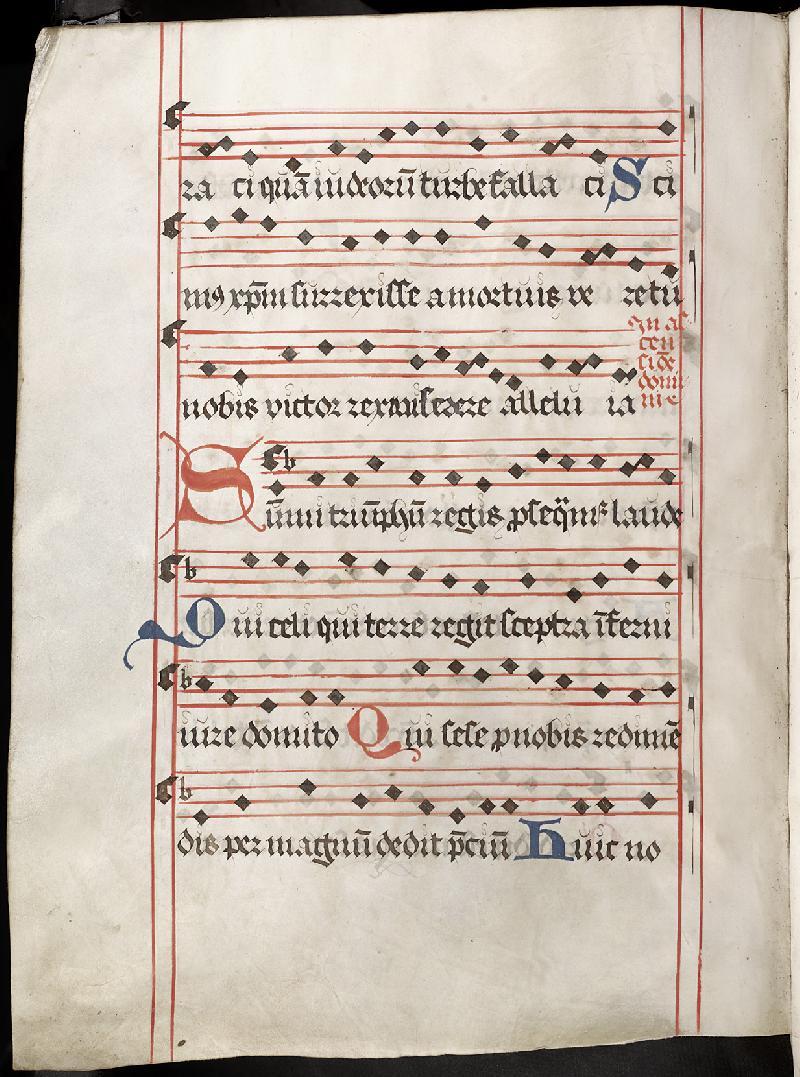 ra ci quā iudeorū turbe falla ci Sci
mꝰ xp̄m surrexisse a mortuis ve re tu
nobis victor rex miserere allelu ia
In as
cen
siōe
domi
ni
Sūmi triūphū regis ꝓseq̄mᷣ laude
Qui celi qui terre regit sceptra īferni
iure domito Qui sese ꝓ nobis redimē
dis per magnū dedit p̄ciū Huic no